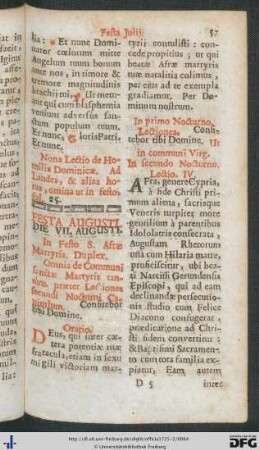 Festa Julij. 57
lia: Et nunc Domi-
nator cœlorum mitte
Angelum tuum bonum
ante nos, in timore &
tremore magnitudinis
brachij tui, Ut metu-
ant qui cum blasphemia
veniunt adversus san-
ctum populum tuum.
Et nunc, Gloria Patri.
Et nunc.
Nona Lectio de Ho-
milia Dominicæ. Ad
Laudes, & alias ho-
ras, omnia ut in festo.
fol. 25.
FESTA AUGUSTI.
DIE VII. AUGUSTI.
In Festo S. Afræ
Martyris. Duplex.
Omnia de Communi
sanctæ Martyris tan-
tum, præter Lectiones
secundi Nocturni
Confitebor
tibi Domine.
Oratio.
DEus, qui inter cæ-
tera potentiæ tuæ
miracula, etiam in sexu
fragili victoriam mar-
tyrij contulisti: con-
cede propitius; ut qui
beatæ Afræ martyris
tuæ natalitia colimus,
per ejus ad te exempla
gradiamur. Per Do-
minum nostrum.
In primo Nocturno,
Lectiones. Confi-
tebor tibi Domine. Ut
in communi Virg.
In secundo Nocturno.
Lectio. IV.
AFra, genere Cypria,
à fide Christi pri-
mum aliena, sacrisque
Veneris turpiter more
gentilium à parentibus
Idololatris consecrata;
Augustam Rhetorum
usà cum Hilaria matre,
proficiscitur, ubi be-
ati Narcissi Gerundensis
Episcopi, qui eam do
declinandæ persecutio-
nis studio cum Felice
Diacono confugerat,
prædicatione ad Chri-
sti fidem convertitur:
& baptismi Sacramen-
to cum tota familia ex-
piatur. Eam autem
D 5 inter
http://dl.ub.uni-freiburg.de/diglit/officia1725-2/0064
© Universitätsbibliothek Freiburg
DFG